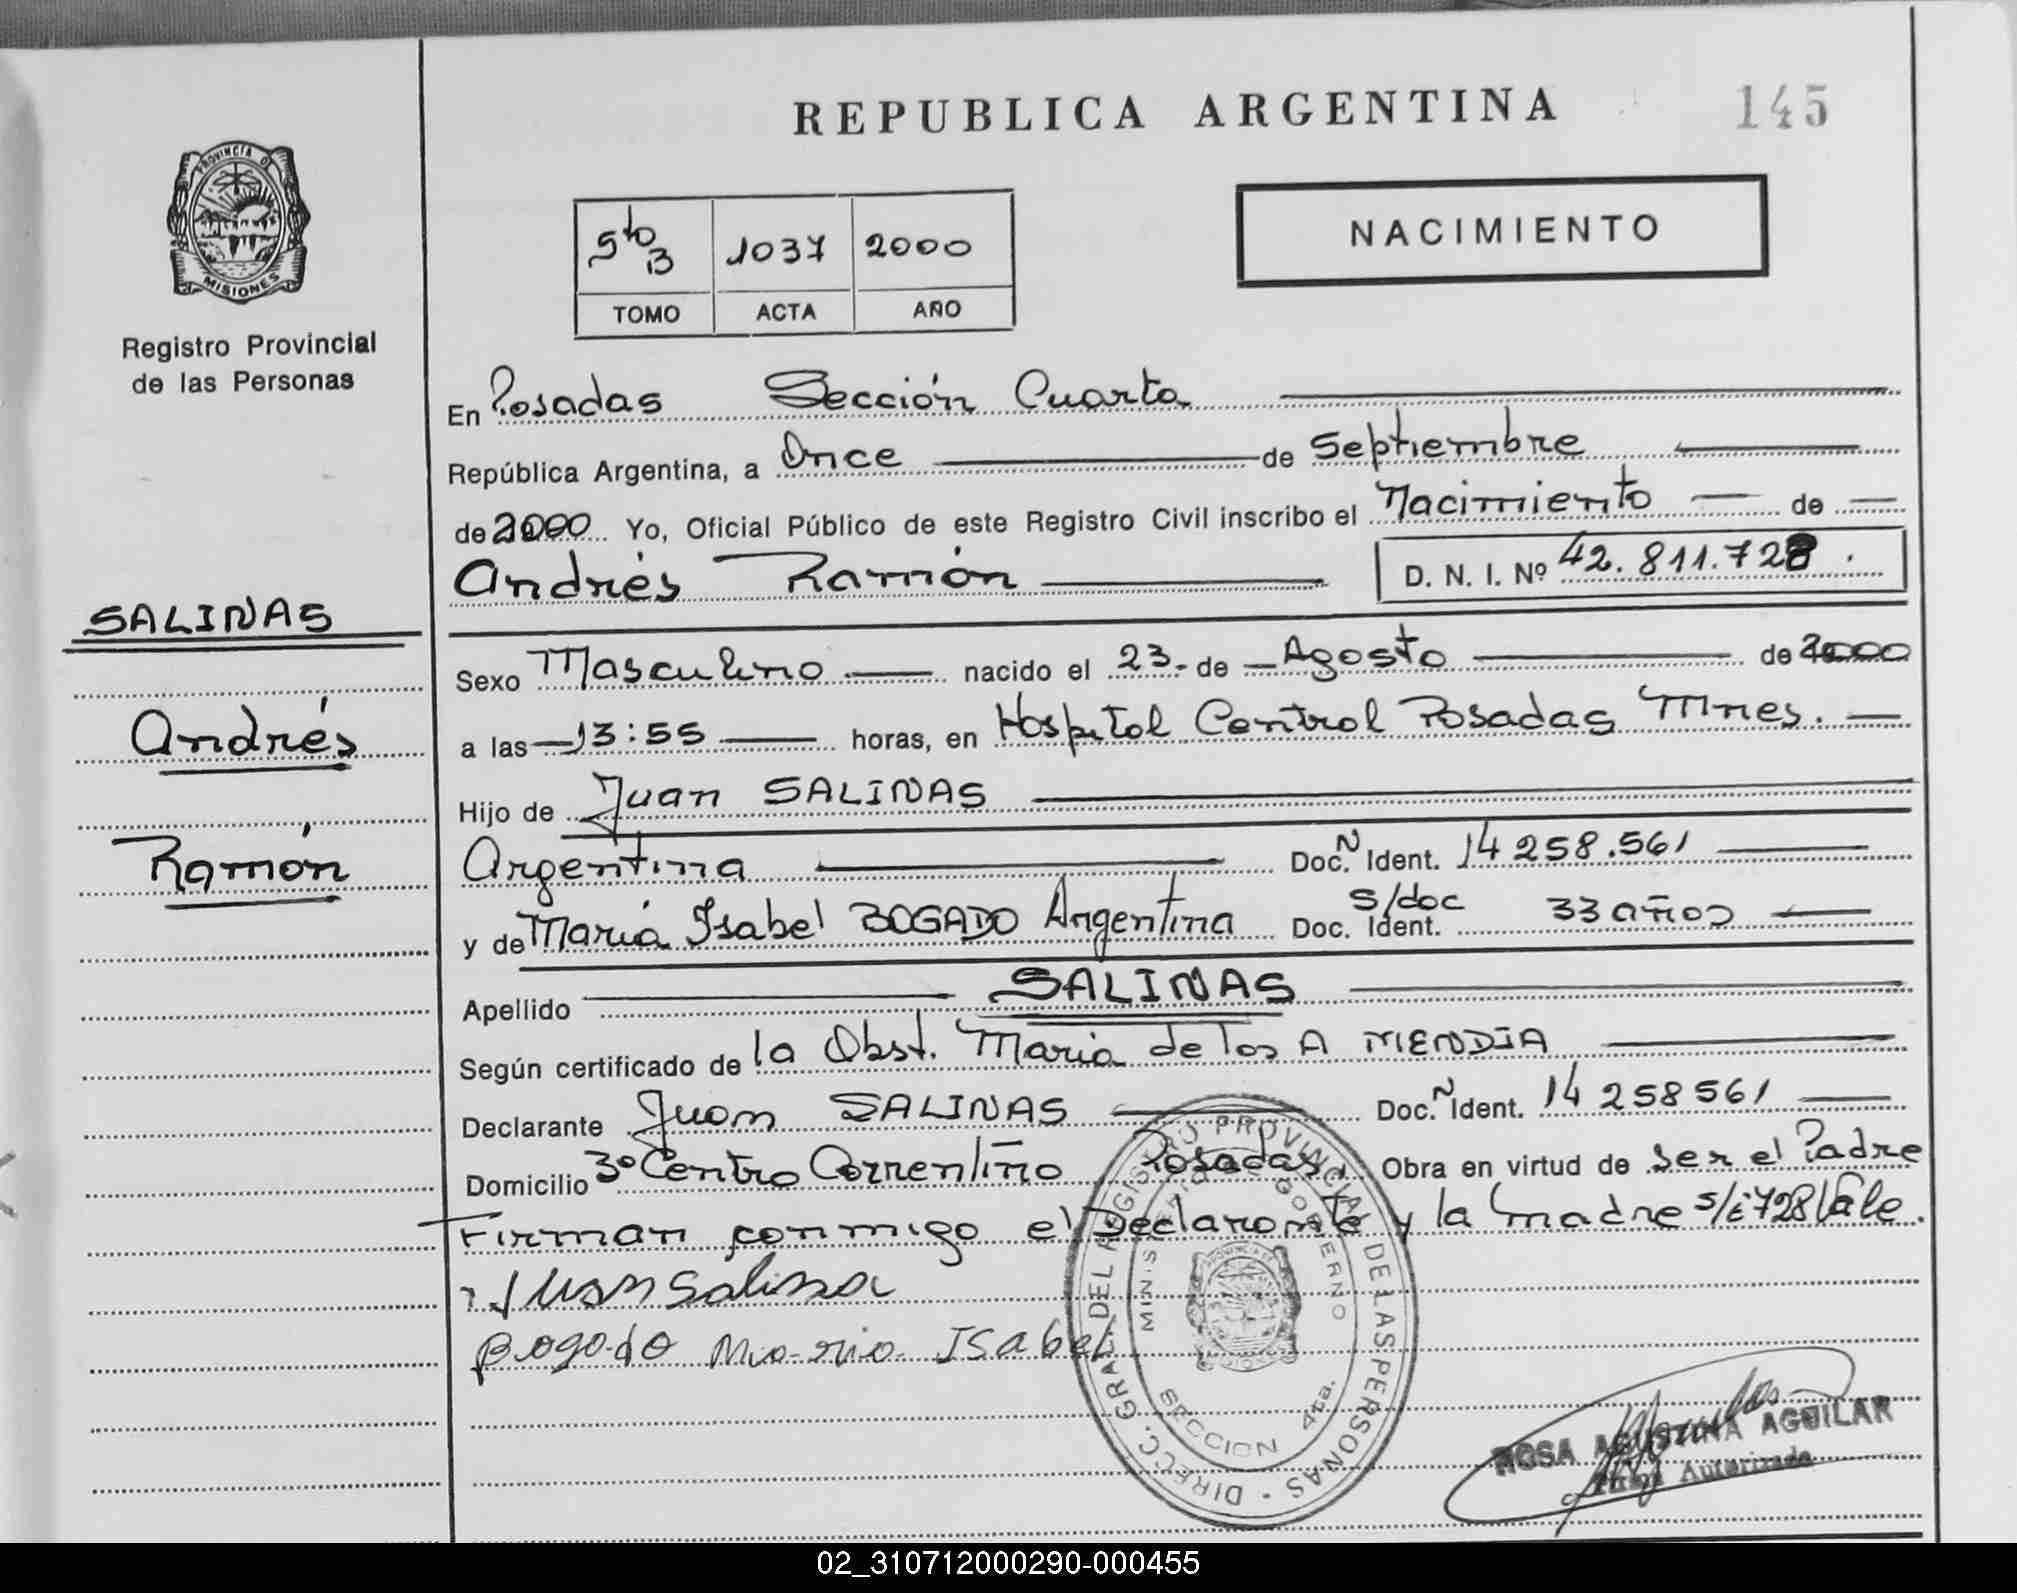 REPUBLICA ARGENTINA
145
PROVINCIA DE
MISIONES
Registro Provincial
de las Personas
5to B 1037 2000
TOMO ACTA AÑO
NACIMIENTO
En Posadas Sección Cuarta
República Argentina, a Once de Septiembre
de 2000 Yo, Oficial Público de este Registro Civil inscribo el Nacimiento de
Andrés Ramón D. N. I. Nº 42.811.728.
SALINAS
Andrés
Ramón
Sexo Masculino nacido el 23 de Agosto de 2000
a las 13:55 horas, en Hospital Central Posadas Mnes.
Hijo de Juan SALINAS
Argentina Doc. N Ident. 14 258.561
y de María Isabel BOGADO Argentina s/doc Doc. Ident. 33 años
Apellido SALINAS
Según certificado de la Obst. Maria de los A MENDIA
Declarante Juan SALINAS Doc. N Ident. 14 258561
Domicilio 3º Centro Correntino Posadas. Obra en virtud de ser el Padre
Firman conmigo el Declarante y la madre s/i 728 Vale.
Juan Salina
Bogado Maria Isabel
DIRECC. GRAL. DEL REGISTRO PROVINCIAL DE LAS PERSONAS
MINISTERIO DE GOBIERNO
SECCION 4ta.
ROSA AGUSTINA AGUILAR
Firma Autorizada
02_310712000290-000455